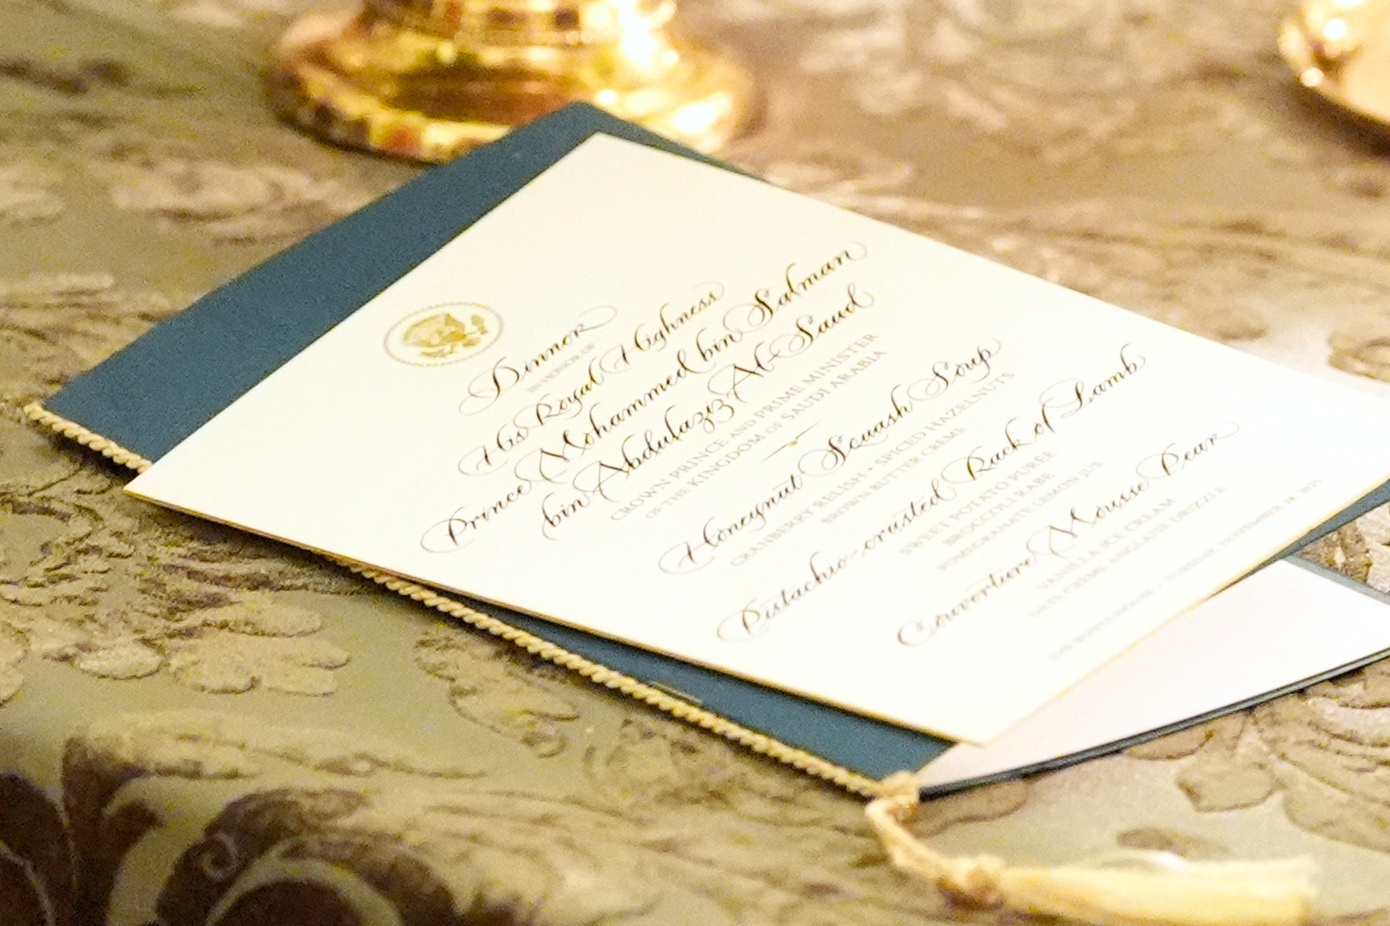 Dinner
IN HONOR OF
His Royal Highness
Prince Mohammed bin Salman
bin Abdulaziz Al Saud
CROWN PRINCE AND PRIME MINISTER
OF THE KINGDOM OF SAUDI ARABIA
Honeynut Squash Soup
CRANBERRY RELISH • SPICED HAZELNUTS
BROWN BUTTER CRÈME
Pistachio-crusted Rack of Lamb
SWEET POTATO PURÉE
BROCCOLI RABE
POMEGRANATE LEMON JUS
Couverture Mousse Pear
VANILLA ICE CREAM
DATE CRÈME ANGLAISE DRIZZLE
THE WHITE HOUSE • TUESDAY, NOVEMBER 18, 2025